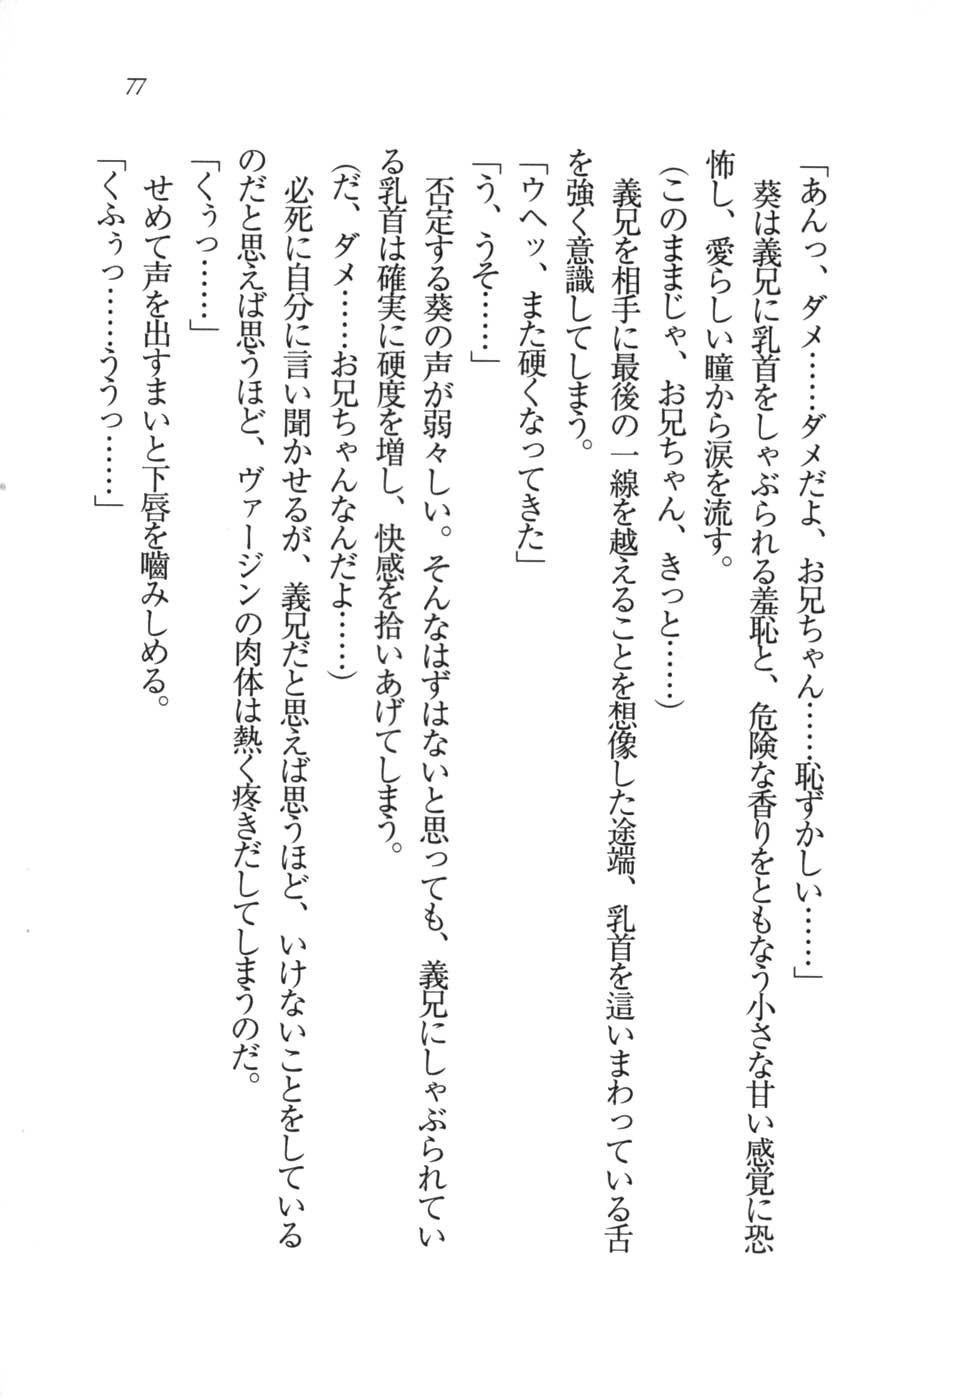 77
「あんっ、ダメ……ダメだよ、お兄ちゃん……恥ずかしい……」
葵は義兄に乳首をしゃぶられる羞恥と、危険な香りをともなう小さな甘い感覚に恐
怖し、愛らしい瞳から涙を流す。
(このままじゃ、お兄ちゃん、きっと……)
義兄を相手に最後の一線を越えることを想像した途端、乳首を這いまわっている舌
を強く意識してしまう。
「ウヘッ、また硬くなってきた」
「う、うそ……」
否定する葵の声が弱々しい。そんなはずはないと思っても、義兄にしゃぶられてい
る乳首は確実に硬度を増し、快感を拾いあげてしまう。
(だ、ダメ……お兄ちゃんなんだよ……)
必死に自分に言い聞かせるが、義兄だと思えば思うほど、いけないことをしている
のだと思えば思うほど、ヴァージンの肉体は熱く疼きだしてしまうのだ。
「くぅっ……」
せめて声を出すまいと下唇を嚙みしめる。
「くふぅっ……ううっ……」